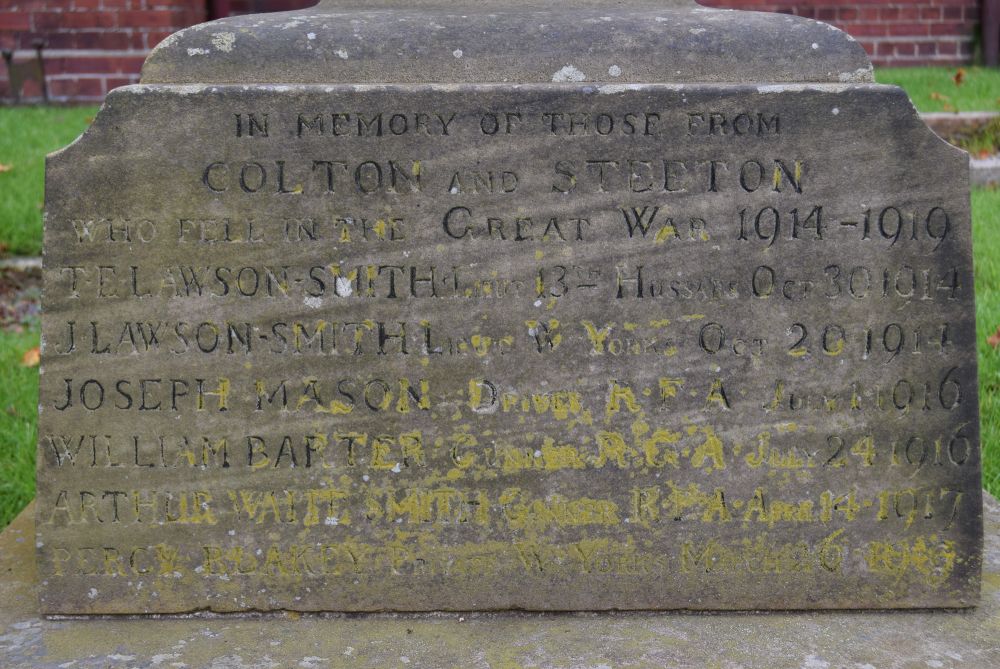 IN MEMORY OF THOSE FROM
COLTON AND STEETON
WHO FELL IN THE GREAT WAR 1914-1919
T·E LAWSON-SMITH LIEUT 13TH HUSSARS OCT 30 1914
J LAWSON-SMITH LIEUT W YORKS OCT 20 1914
JOSEPH MASON DRIVER R·F·A JULY 1 1916
WILLIAM BARTER GUNNER R·G·A·JULY 24·1916
ARTHUR WAITE SMITH GUNNER R·F·A·APRIL 14·1917
PERCY BLAKEY PRIVATE W YORKS MARCH 26